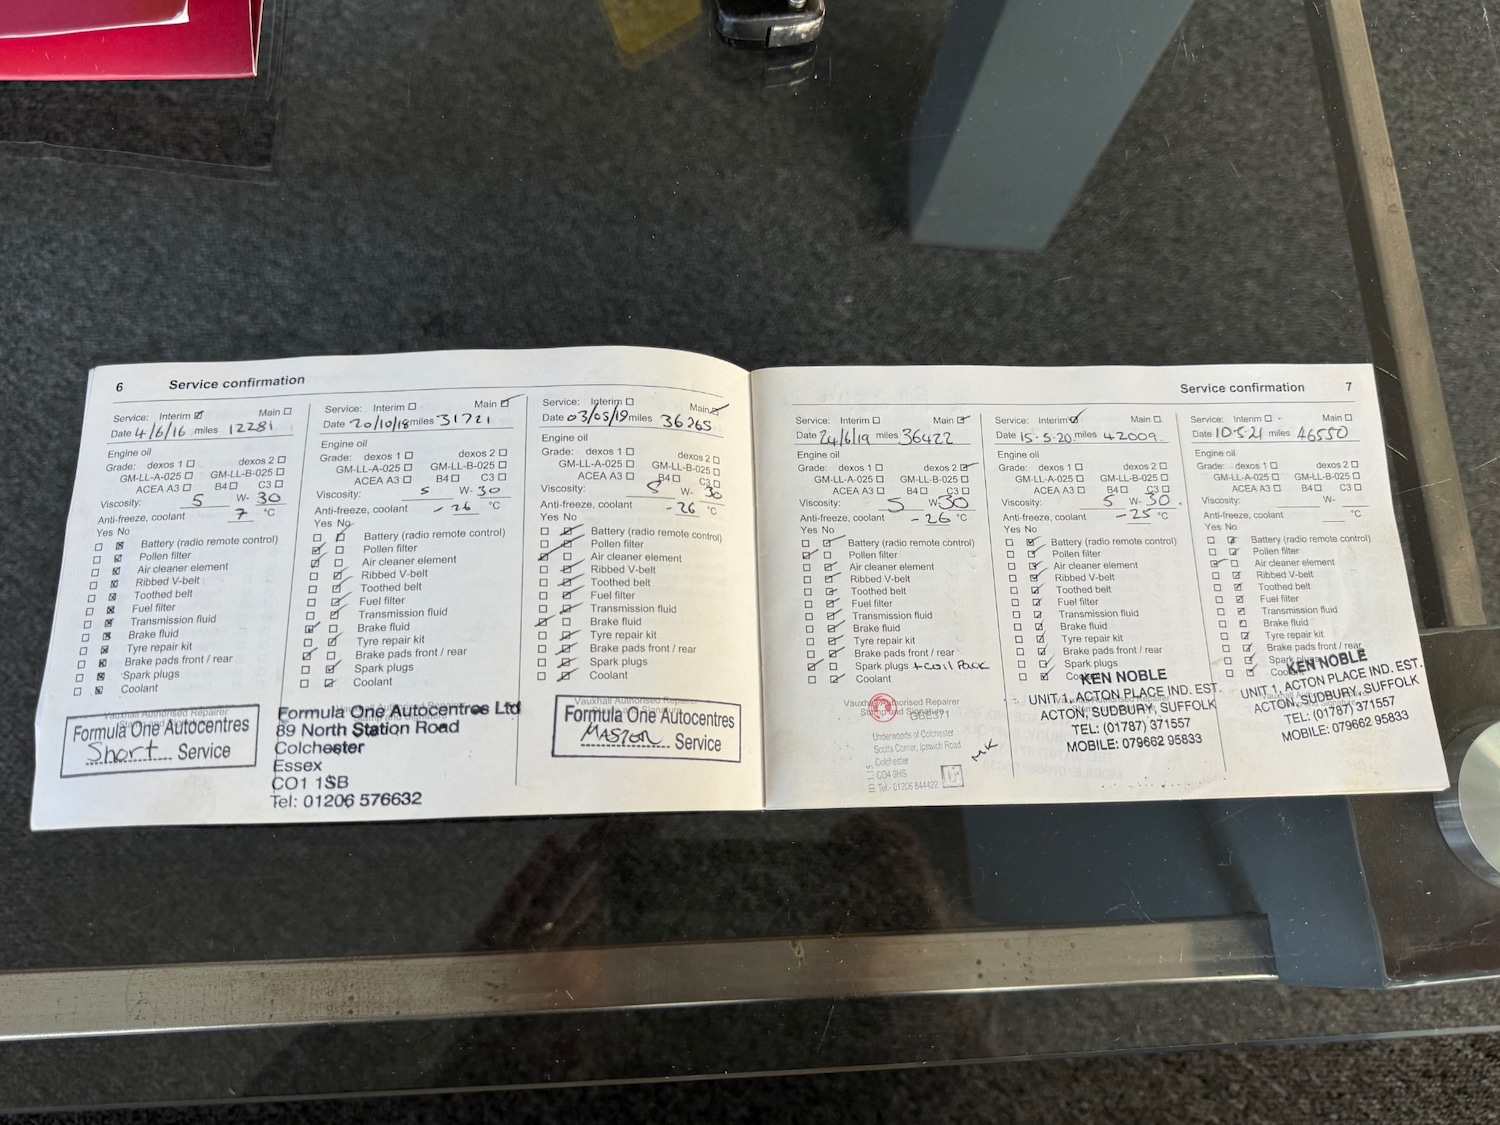 6 Service confirmation
Service: Interim Main
Date 4/6/16 miles 12281
Engine oil
Grade: dexos 1 dexos 2
GM-LL-A-025 GM-LL-B-025
ACEA A3 B4 C3
Viscosity: 5 W- 30
Anti-freeze, coolant 7 °C
Yes No
Battery (radio remote control)
Pollen filter
Air cleaner element
Ribbed V-belt
Toothed belt
Fuel filter
Transmission fluid
Brake fluid
Tyre repair kit
Brake pads front / rear
Spark plugs
Coolant
Vauxhall Authorised Repairer
Formula One Autocentres
Short Service
Service: Interim Main
Date 20/10/18 miles 31721
Engine oil
Grade: dexos 1 dexos 2
GM-LL-A-025 GM-LL-B-025
ACEA A3 B4 C3
Viscosity: 5 W- 30
Anti-freeze, coolant -26 °C
Yes No
Battery (radio remote control)
Pollen filter
Air cleaner element
Ribbed V-belt
Toothed belt
Fuel filter
Transmission fluid
Brake fluid
Tyre repair kit
Brake pads front / rear
Spark plugs
Coolant
Formula One Autocentres Ltd
89 North Station Road
Colchester
Essex
CO1 1SB
Tel: 01206 576632
Service: Interim Main
Date 03/05/19 miles 36265
Engine oil
Grade: dexos 1 dexos 2
GM-LL-A-025 GM-LL-B-025
ACEA A3 B4 C3
Viscosity: 5 W- 30
Anti-freeze, coolant -26 °C
Yes No
Battery (radio remote control)
Pollen filter
Air cleaner element
Ribbed V-belt
Toothed belt
Fuel filter
Transmission fluid
Brake fluid
Tyre repair kit
Brake pads front / rear
Spark plugs
Coolant
Vauxhall Authorised Repairer
Formula One Autocentres
MASTER Service
Service confirmation 7
Service: Interim Main
Date 24/6/19 miles 36422
Engine oil
Grade: dexos 1 dexos 2
GM-LL-A-025 GM-LL-B-025
ACEA A3 B4 C3
Viscosity: 5 W- 30
Anti-freeze, coolant -26 °C
Yes No
Battery (radio remote control)
Pollen filter
Air cleaner element
Ribbed V-belt
Toothed belt
Fuel filter
Transmission fluid
Brake fluid
Tyre repair kit
Brake pads front / rear
Spark plugs + Coil Pack
Coolant
Vauxhall Authorised Repairer
Stamp and Signature
Underwoods of Colchester
Scotts Corner, Ipswich Road
Colchester
CO4 9HS
Tel:- 01206 844422
Service: Interim Main
Date 15·5·20 miles 42009
Engine oil
Grade: dexos 1 dexos 2
GM-LL-A-025 GM-LL-B-025
ACEA A3 B4 C3
Viscosity: 5 W- 30
Anti-freeze, coolant -25 °C
Yes No
Battery (radio remote control)
Pollen filter
Air cleaner element
Ribbed V-belt
Toothed belt
Fuel filter
Transmission fluid
Brake fluid
Tyre repair kit
Brake pads front / rear
Spark plugs
KEN NOBLE
UNIT 1, ACTON PLACE IND. EST.
ACTON, SUDBURY, SUFFOLK
TEL: (01787) 371557
MOBILE: 079662 95833
Service: Interim Main
Date 10·5·21 miles 46550
Engine oil
Grade: dexos 1 dexos 2
GM-LL-A-025 GM-LL-B-025
ACEA A3 B4 C3
Viscosity: W-
Anti-freeze, coolant °C
Yes No
Battery (radio remote control)
Pollen filter
Air cleaner element
Ribbed V-belt
Toothed belt
Fuel filter
Transmission fluid
Brake fluid
Tyre repair kit
Brake pads front / rear
Spark plugs
KEN NOBLE
UNIT 1, ACTON PLACE IND. EST.
ACTON, SUDBURY, SUFFOLK
TEL: (01787) 371557
MOBILE: 079662 95833